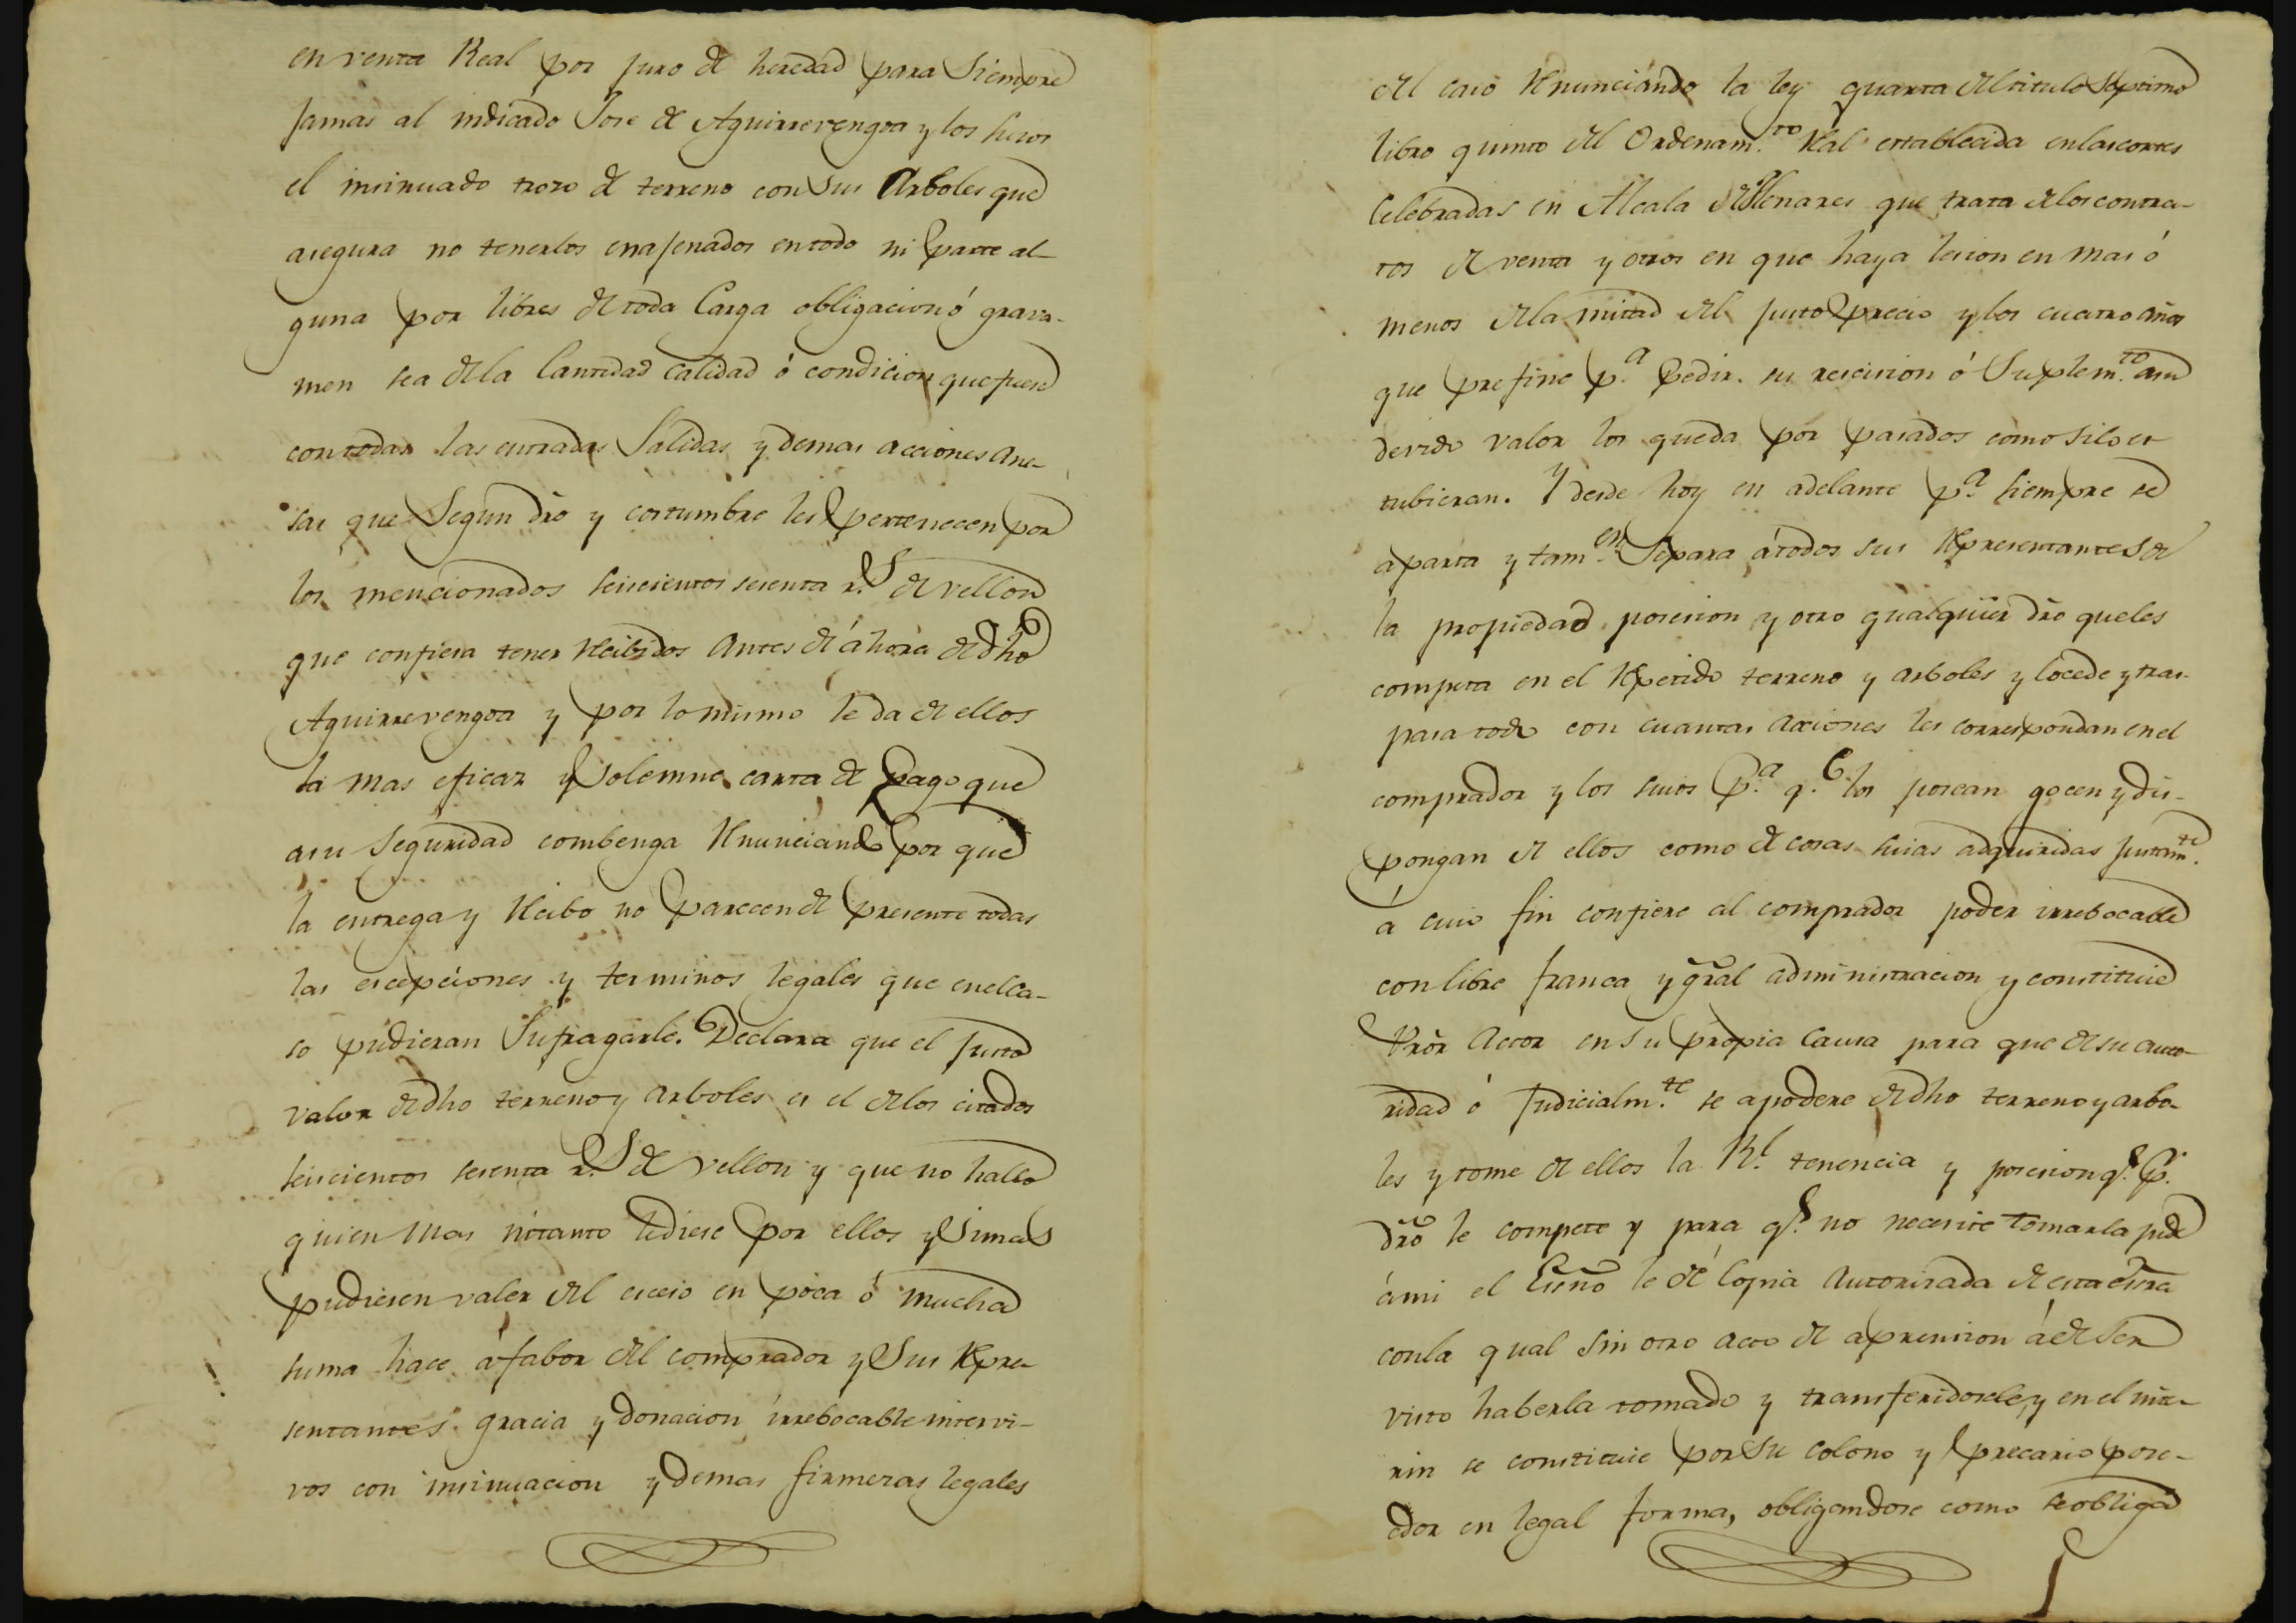 en venta Real por juro de heredad para Siempre
Jamas al indicado Jose de Aguirrevengoa y los suios
el insinuado trozo de terreno con sus Arboles que
asegura no tenerlos enajenados en todo ni parte al-
guna por libres de toda Carga obligacion ó grava-
men sea de la Cantidad calidad ó condicion que fuese
con todas las entradas Salidas y demas acciones ane-
sas que Segun dro y costumbre les pertenecen por
los mencionados seiscientos sesenta r.s de vellon
que confiesa tener Recibidos Antes de áhora de dho
Aguirrevengoa y por lo mismo le da de ellos
la mas eficaz y solemne carta de pago que
asu Seguridad combenga Renunciando por que
la entrega y Recibo no parecen de presente todas
las escepciones y terminos legales que en el ca-
so pudieran Sufragarle. Declara que el justo
valor de dho terreno y arboles es el de los citados
seiscientos sesenta r.s de vellon y que no hallo
quien mas ni tanto le diese por ellos y si mas
pudiesen valer del eccesso en poca ó mucha
suma hace á fabor del comprador y Sus Repre-
sentantes gracia y donacion irrebocable intervi-
vos con insinuacion y demas firmezas legales
del caso Renunciando la ley quarta del titulo Septimo
libro quinto del Ordenam.to Real establecida en las cortes
Celebradas en Alcala de Henares que trata de los contra-
tos de venta y otros en que haya lesion en mas ó
menos de la mitad del justo precio y los cuatro años
que prefine p.a Pedir su rescision ó Suplem.to a su
devido valor los queda por pasados como si lo es
tubieran. Y desde hoy en adelante p.a siempre se
aparta y tam.en Separa á todos sus Representantes de
la propiedad posesion y otro qualquier dro que les
competa en el Repetido terreno y arboles y lo cede y tras-
pasa todo con cuantas acciones les correspondan en el
comprador y los suios P.a q.e los posean gocen y dis-
pongan de ellos como de cosas suias adquiridas justam.te
á cuio fin confiere al comprador poder irrebocable
con libre franca y gral administracion y constituie
Pror Actor en su propia Causa para que de su auto-
ridad ó Judicialm.te se apodere de dho terreno y arbo-
les y tome de ellos la Rl tenencia y posesion q.e P.
dro le compete y para q.e no necesite tomarla pide
á mi el Essno le dé Copia Autorisada de esta essra
con la qual sin otro acto de aprension á de Ser
visto haberla tomado y transferidosele, y en el inte-
rin se constituie por su colono y precario pose-
edor en legal forma, obligandose como se obliga